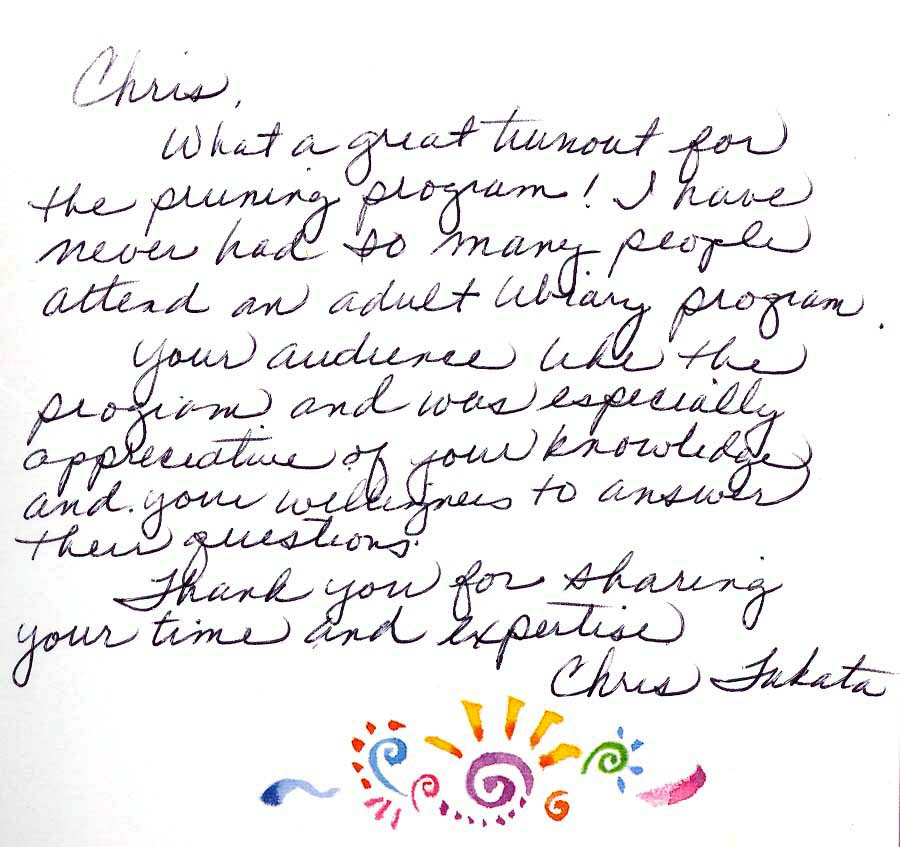 Chris,
What a great turnout for
the pruning program! I have
never had so many people
attend an adult library program.
Your audience like the
program and was especially
appreciative of your knowledge
and your willingness to answer
their questions.
Thank you for sharing
your time and expertise
Chris Takata